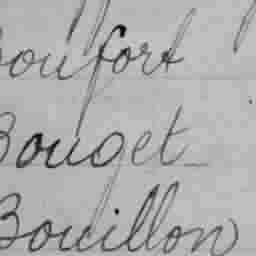 Boufort
Bouget
Bouillon